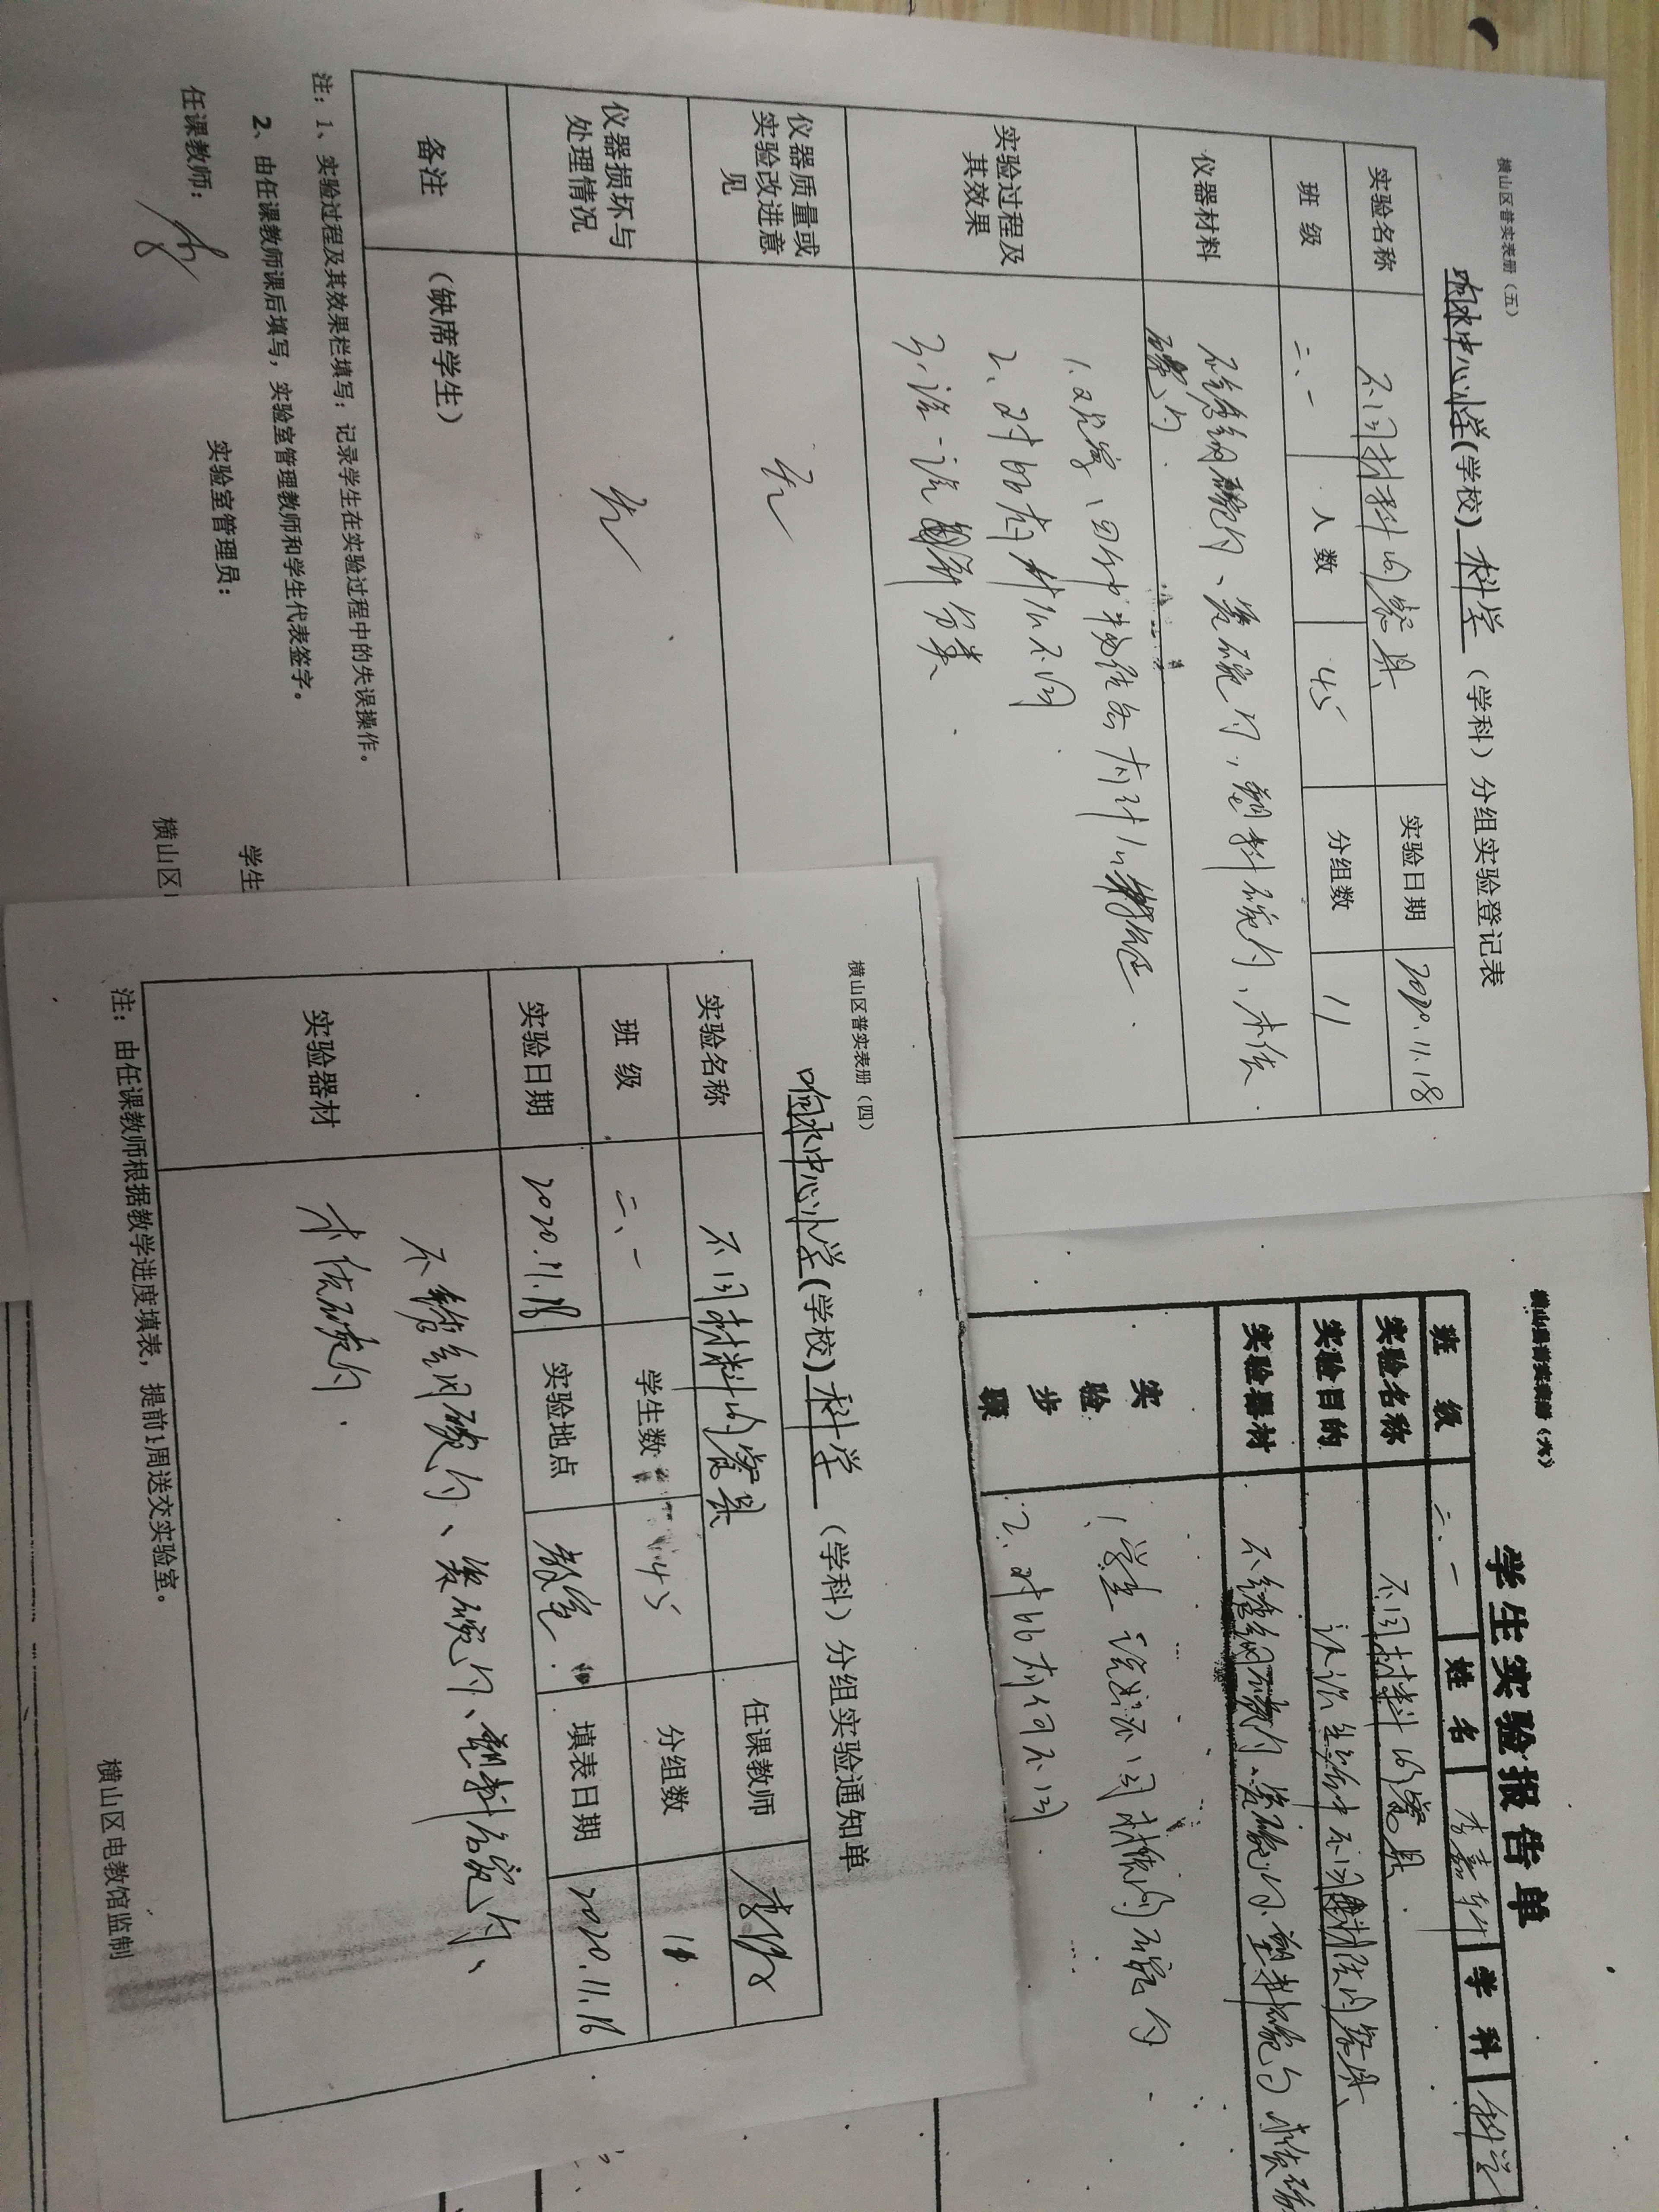 横山区普实表册（五）
响水中心小学(学校) 科学（学科）分组实验登记表
实验名称 不同材料的餐具 实验日期 2020.11.18
班 级 二、一 人 数 45 分组数 11
仪器材料 不锈钢碗勺、瓷碗勺、塑料碗勺、木质
碗勺.
实验过程及
其效果
1.观察、四种物质各有什么特征.
2、对比有什么不同.
3、说一说 分类.
仪器质量或
实验改进意
见
无
仪器损坏与
处理情况
无
备注 （缺席学生）
注：1、实验过程及其效果栏填写：记录学生在实验过程中的失误操作。
2、由任课教师课后填写，实验室管理教师和学生代表签字。
任课教师： 实验室管理员： 学生
横山区
横山区普实表册（四）
响水中心小学(学校) 科学（学科）分组实验通知单
实验名称 不同材料的餐具 任课教师
班 级 二、一 学生数 45 分组数 11
实验日期 2020.11.18 实验地点 教室. 填表日期 2020.11.16
实验器材
不锈钢碗勺、瓷碗勺、塑料碗勺、
木质碗勺.
注：由任课教师根据教学进度填表，提前1周送交实验室。
横山区电教馆监制
横山县普实表册（六）
学生实验报告单
班 级 二、一 姓 名 李嘉轩 学 科 科学
实验名称 不同材料的餐具.
实验目的 认识生活中不同材质的餐具.
实验器材 不锈钢碗勺、瓷碗勺、塑料碗勺 木质碗
实
验
步
骤
1、学生说出不同材质的碗勺
2、对比有何不同.